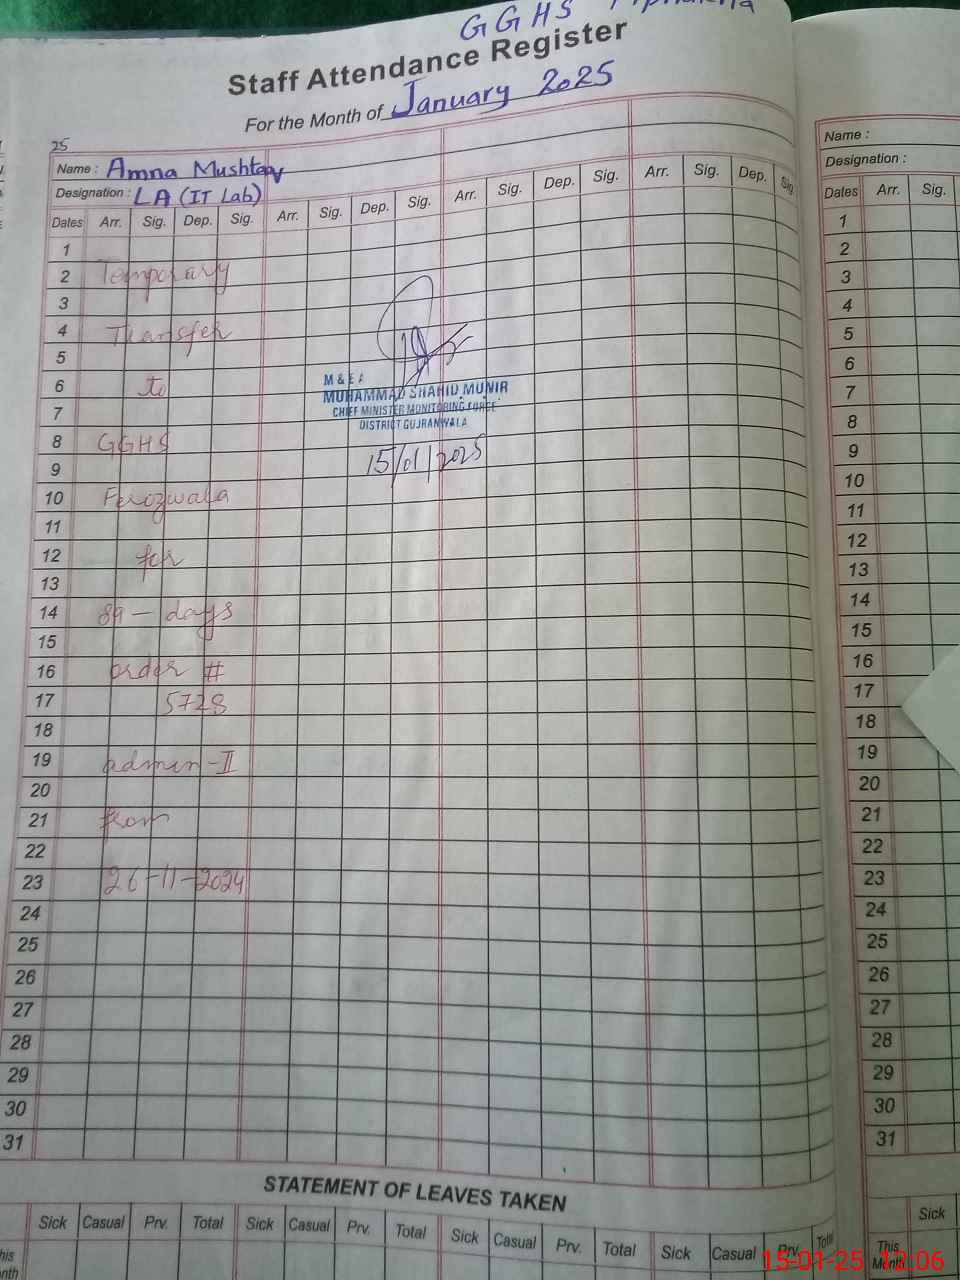 GGHS
Staff Attendance Register
For the Month of January 2025
25
Name : Amna Mushtaq
Designation : LA (IT Lab)
Dates Arr. Sig. Dep. Sig. Arr. Sig. Dep. Sig. Arr. Sig. Dep. Sig. Arr. Sig. Dep. Sig
1
2 Temporary
3
4 Transfer
5
6 to
7
8 GGHS
9
10 Ferozwala
11
12 for
13
14 89 - days
15
16 order #
17 5728
18
19 admin - II
20
21 from
22
23 26-11-2024
24
25
26
27
28
29
30
31
M & E A
MUHAMMAD SHAHID MUNIR
CHIEF MINISTER MONITORING FORCE
DISTRICT GUJRANWALA
15/01/2025
STATEMENT OF LEAVES TAKEN
Sick Casual Prv. Total Sick Casual Prv. Total Sick Casual Prv. Total Sick Casual Prv. Total
Name :
Designation :
Dates Arr. Sig.
1
2
3
4
5
6
7
8
9
10
11
12
13
14
15
16
17
18
19
20
21
22
23
24
25
26
27
28
29
30
31
Sick
This
Month
15-01-25 12:06